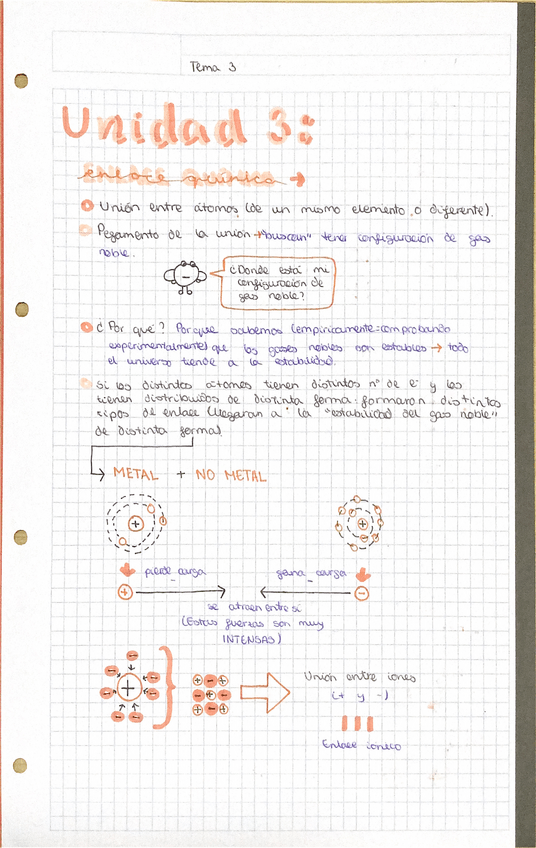 Tema 3
Unidad 3:
enlace químico →
Unión entre átomos (de un mismo elemento o diferente).
Pegamento de la unión → "buscan" tener configuración de gas
noble.
¿Donde está mi
configuración de
gas noble?
¿Por qué? Porque sabemos (empíricamente=comprobando
experimentalmente) que los gases nobles son estables → todo
el universo tiende a la estabilidad.
Si los distintos átomos tienen distintos nº de e⁻ y los
tienen distribuidos de distinta forma: formaron distintos
tipos de enlace (llegaran a la "estabilidad del gas noble"
de distinta forma)
METAL + NO METAL
pierde carga
gana carga
se atraen entre sí
(Estas fuerzas son muy
INTENSAS)
Unión entre iones
(+ y -)
Enlace ionico